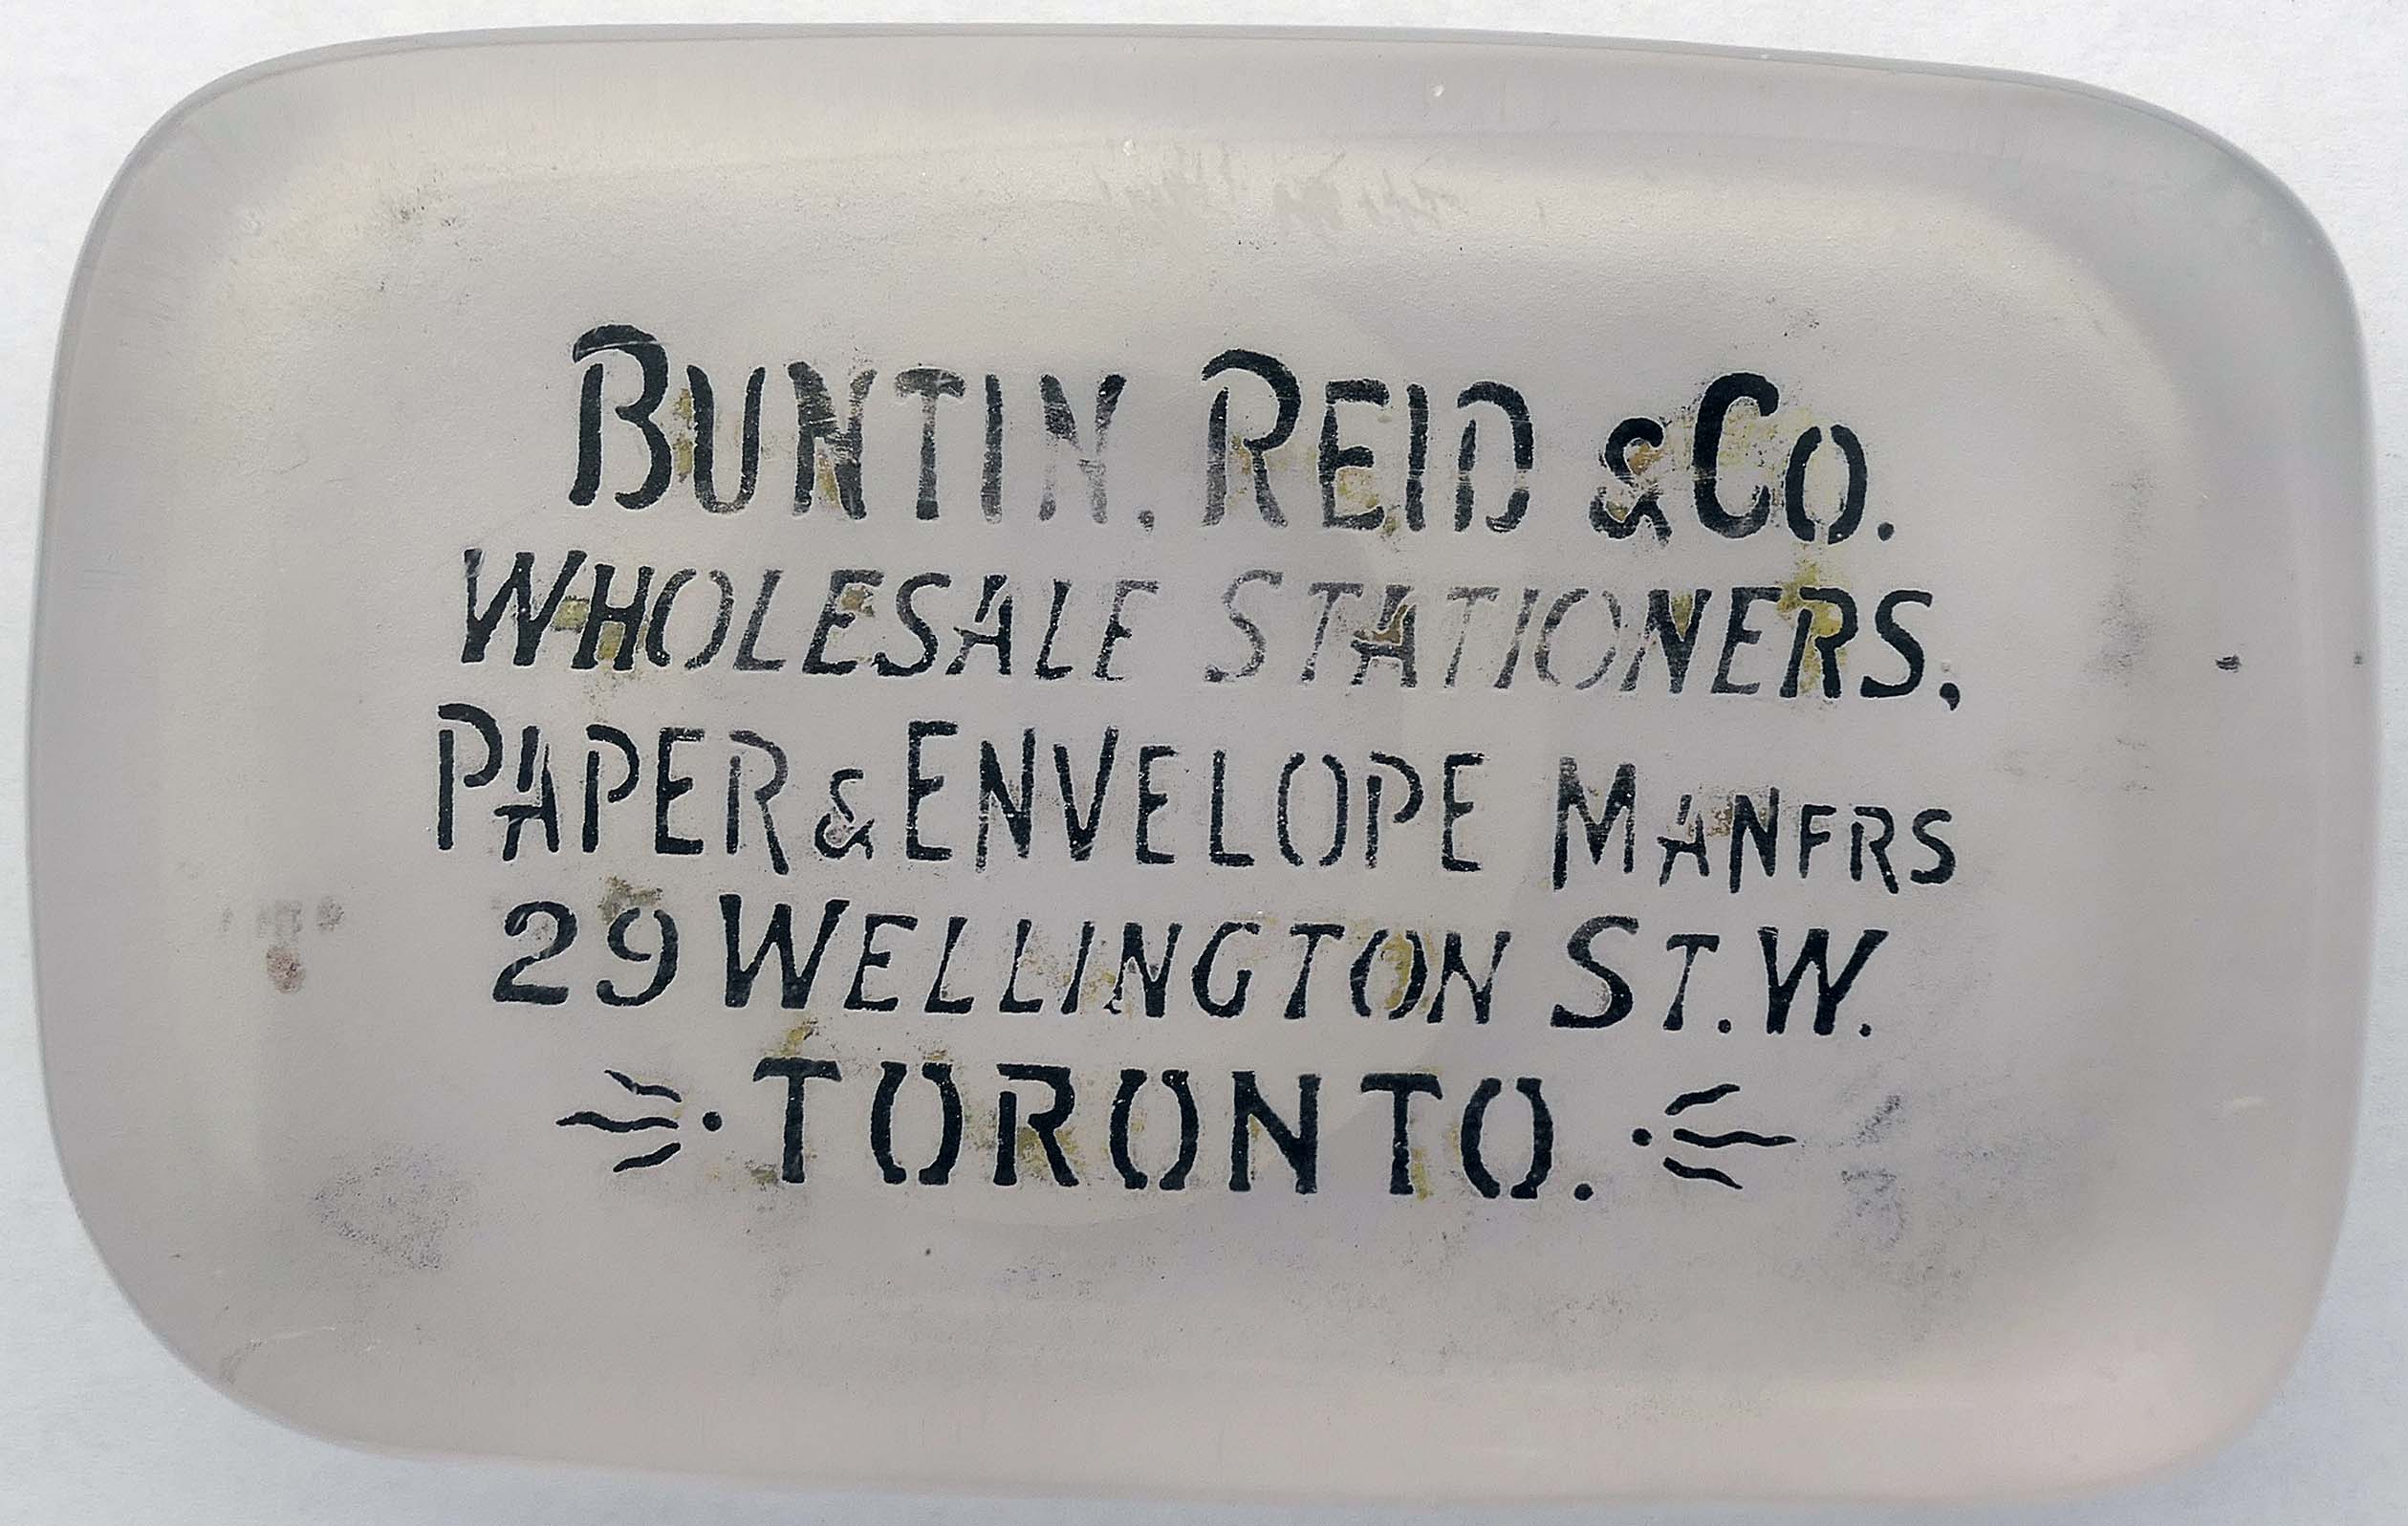 BUNTIN. REID & CO.
WHOLESALE STATIONERS,
PAPER & ENVELOPE MANFRS
29 WELLINGTON ST. W.
TORONTO.